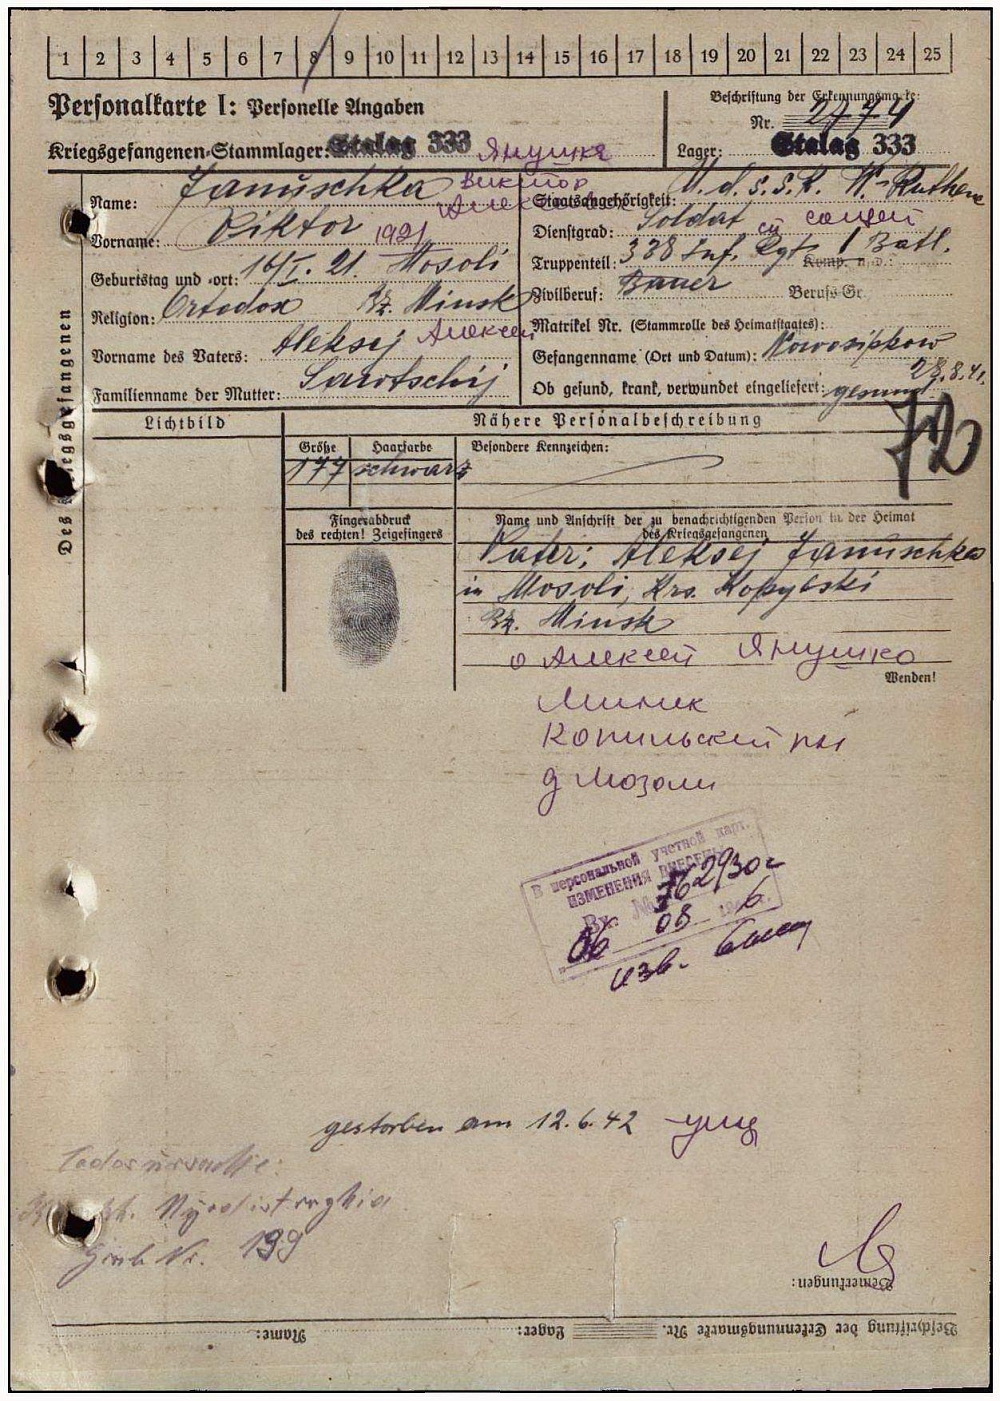 1 2 3 4 5 6 7 8 9 10 11 12 13 14 15 16 17 18 19 20 21 22 23 24 25
Personalkarte I: Personelle Angaben
Kriegsgefangenen-Stammlager: Stalag 333
Beschriftung der Erkennungsmarke:
Nr. 2774
Lager: Stalag 333
Des Kriegsgefangenen
Янушка
Виктор
Name: Januschka
Vorname: Viktor 1921
Geburtstag und -ort: 16/I. 21. Mosoli
Religion: Ortodox Bz. Minsk
Vorname des Vaters: Aleksej Алексей
Familienname der Mutter: Sarotschij
Staatsangehörigkeit: U.d.S.S.R. W.-Ruthene
Dienstgrad: Soldat
Truppenteil: 338 Inf. Rgt. 1 Batl. Komp. usw.:
Zivilberuf: Bauer Berufs-Gr.
Matrikel Nr. (Stammrolle des Heimatstaates):
Gefangenname (Ort und Datum): Nowosipkow
28.8.41.
Ob gesund, krank, verwundet eingeliefert: gesund
Lichtbild
Nähere Personalbeschreibung
Größe Haarfarbe Besondere Kennzeichen:
177 schwarz
Fingerabdruck
des rechten! Zeigefingers
Name und Anschrift der zu benachrichtigenden Person in der Heimat
des Kriegsgefangenen
Vater: Aleksej Januschka
in Mosoli, Krs. Kopylski
Bz. Minsk
о Алексей Янушко
Wenden!
Минск
Копильский
д Мозоли
В персональной учетной карт.
ИЗМЕНЕНИЯ ВНЕСЕНЫ
Вх. №
06 08 6
изв.
gestorben am 12.6.42
Todesursache:
Grab Nr. 199
Bemerkungen:
Name: Lager: Beschriftung der Erkennungsmarke Nr.